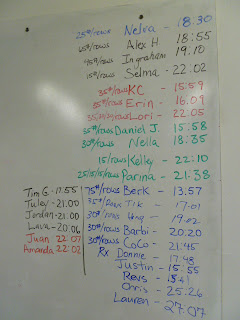 25#/rows Nelva - 18:30
65#/rows Alex H. 18:55
45#/rows Ingraham 19:10
15#/rows Selma - 22:02
35#/rows KC - 15:59
35#/rows Erin - 16:09
35/25/25/rows Lori - 22:05
35#/rows Daniel J. 15:58
30#/rows Nella - 18:35
15/rows Kelley - 22:10
25/15/15/rows Parina - 21:38
75#/rows Berk - 13:57
35# rows Tik - 17:01
30#/rows 19:02
30#/rows Barbi - 20:20
30#/rows CoCo - 21:45
Rx Donnie - 17:48
Justin - 15:55
Bevs -
Chris - 25:26
Lauren - 27:07
Tim G - 17:55
Tuley - 21:00
Jordan - 21:00
Lava - 20:06
Juan 22:07
Amanda - 22:02